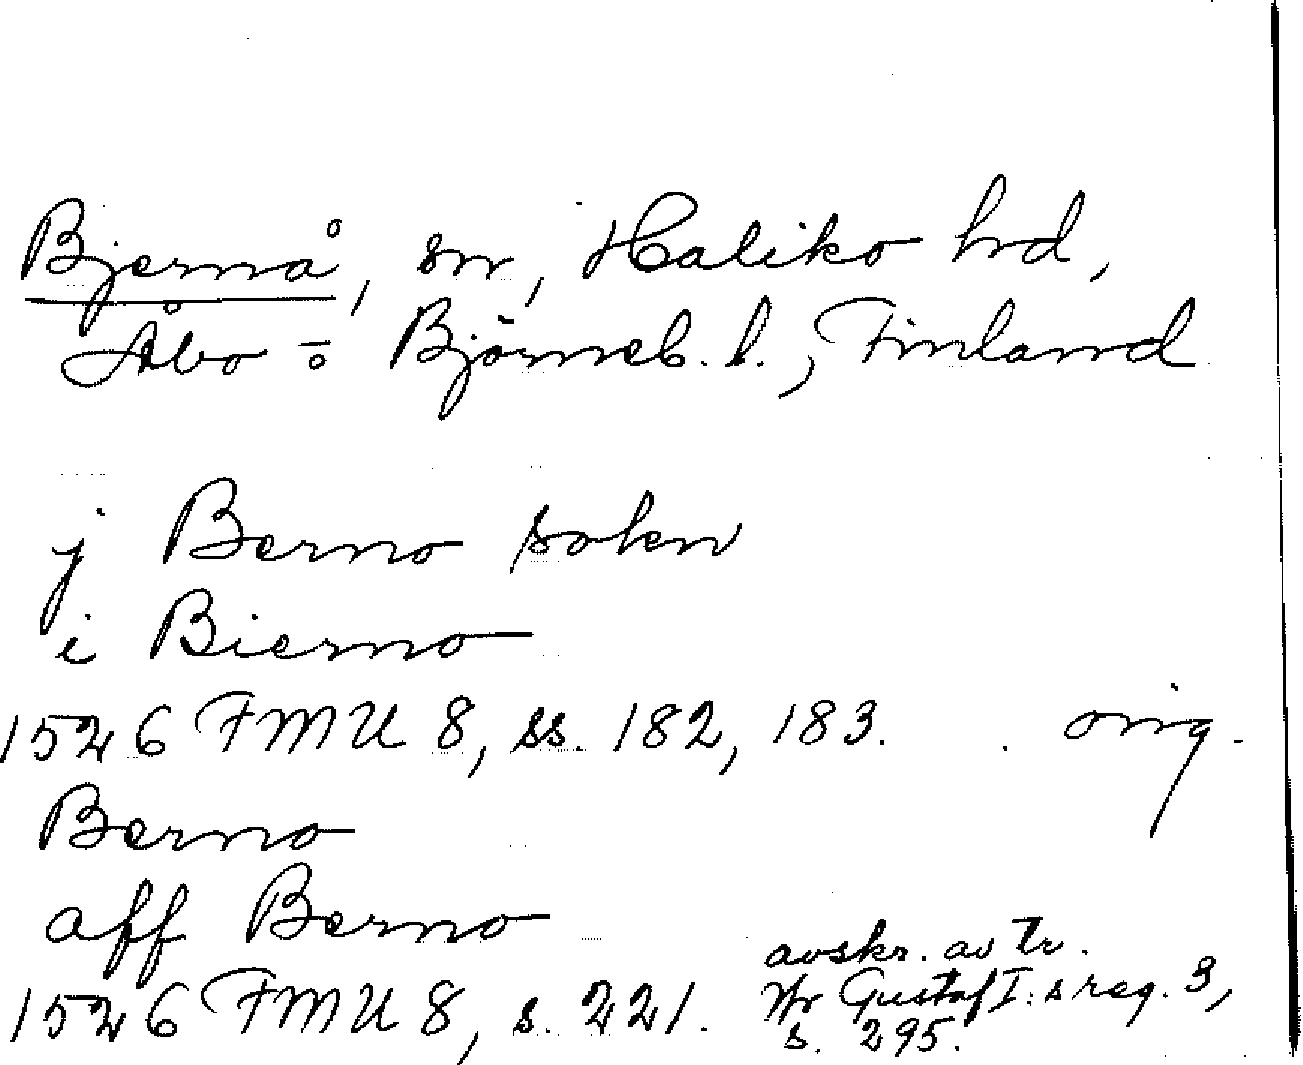 Bjernå, sn, Haliko hd,
Åbo ÷ Björneb. l., Finland
j Berno sokn
i Bierno
1526 FMU 8, ss. 182, 183. orig.
Berno
aff Berno
1526 FMU 8, s. 221. avskr. av tr.
ur Gustaf I:s reg. 3,
s. 295.